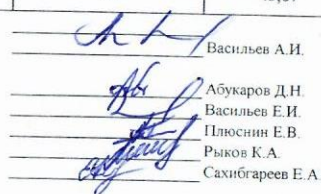 Васильев А.И.
Абукаров Д.Н.
Васильев Е.И.
Плюснин Е.В.
Рыков К.А.
Сахибгареев Е.А.